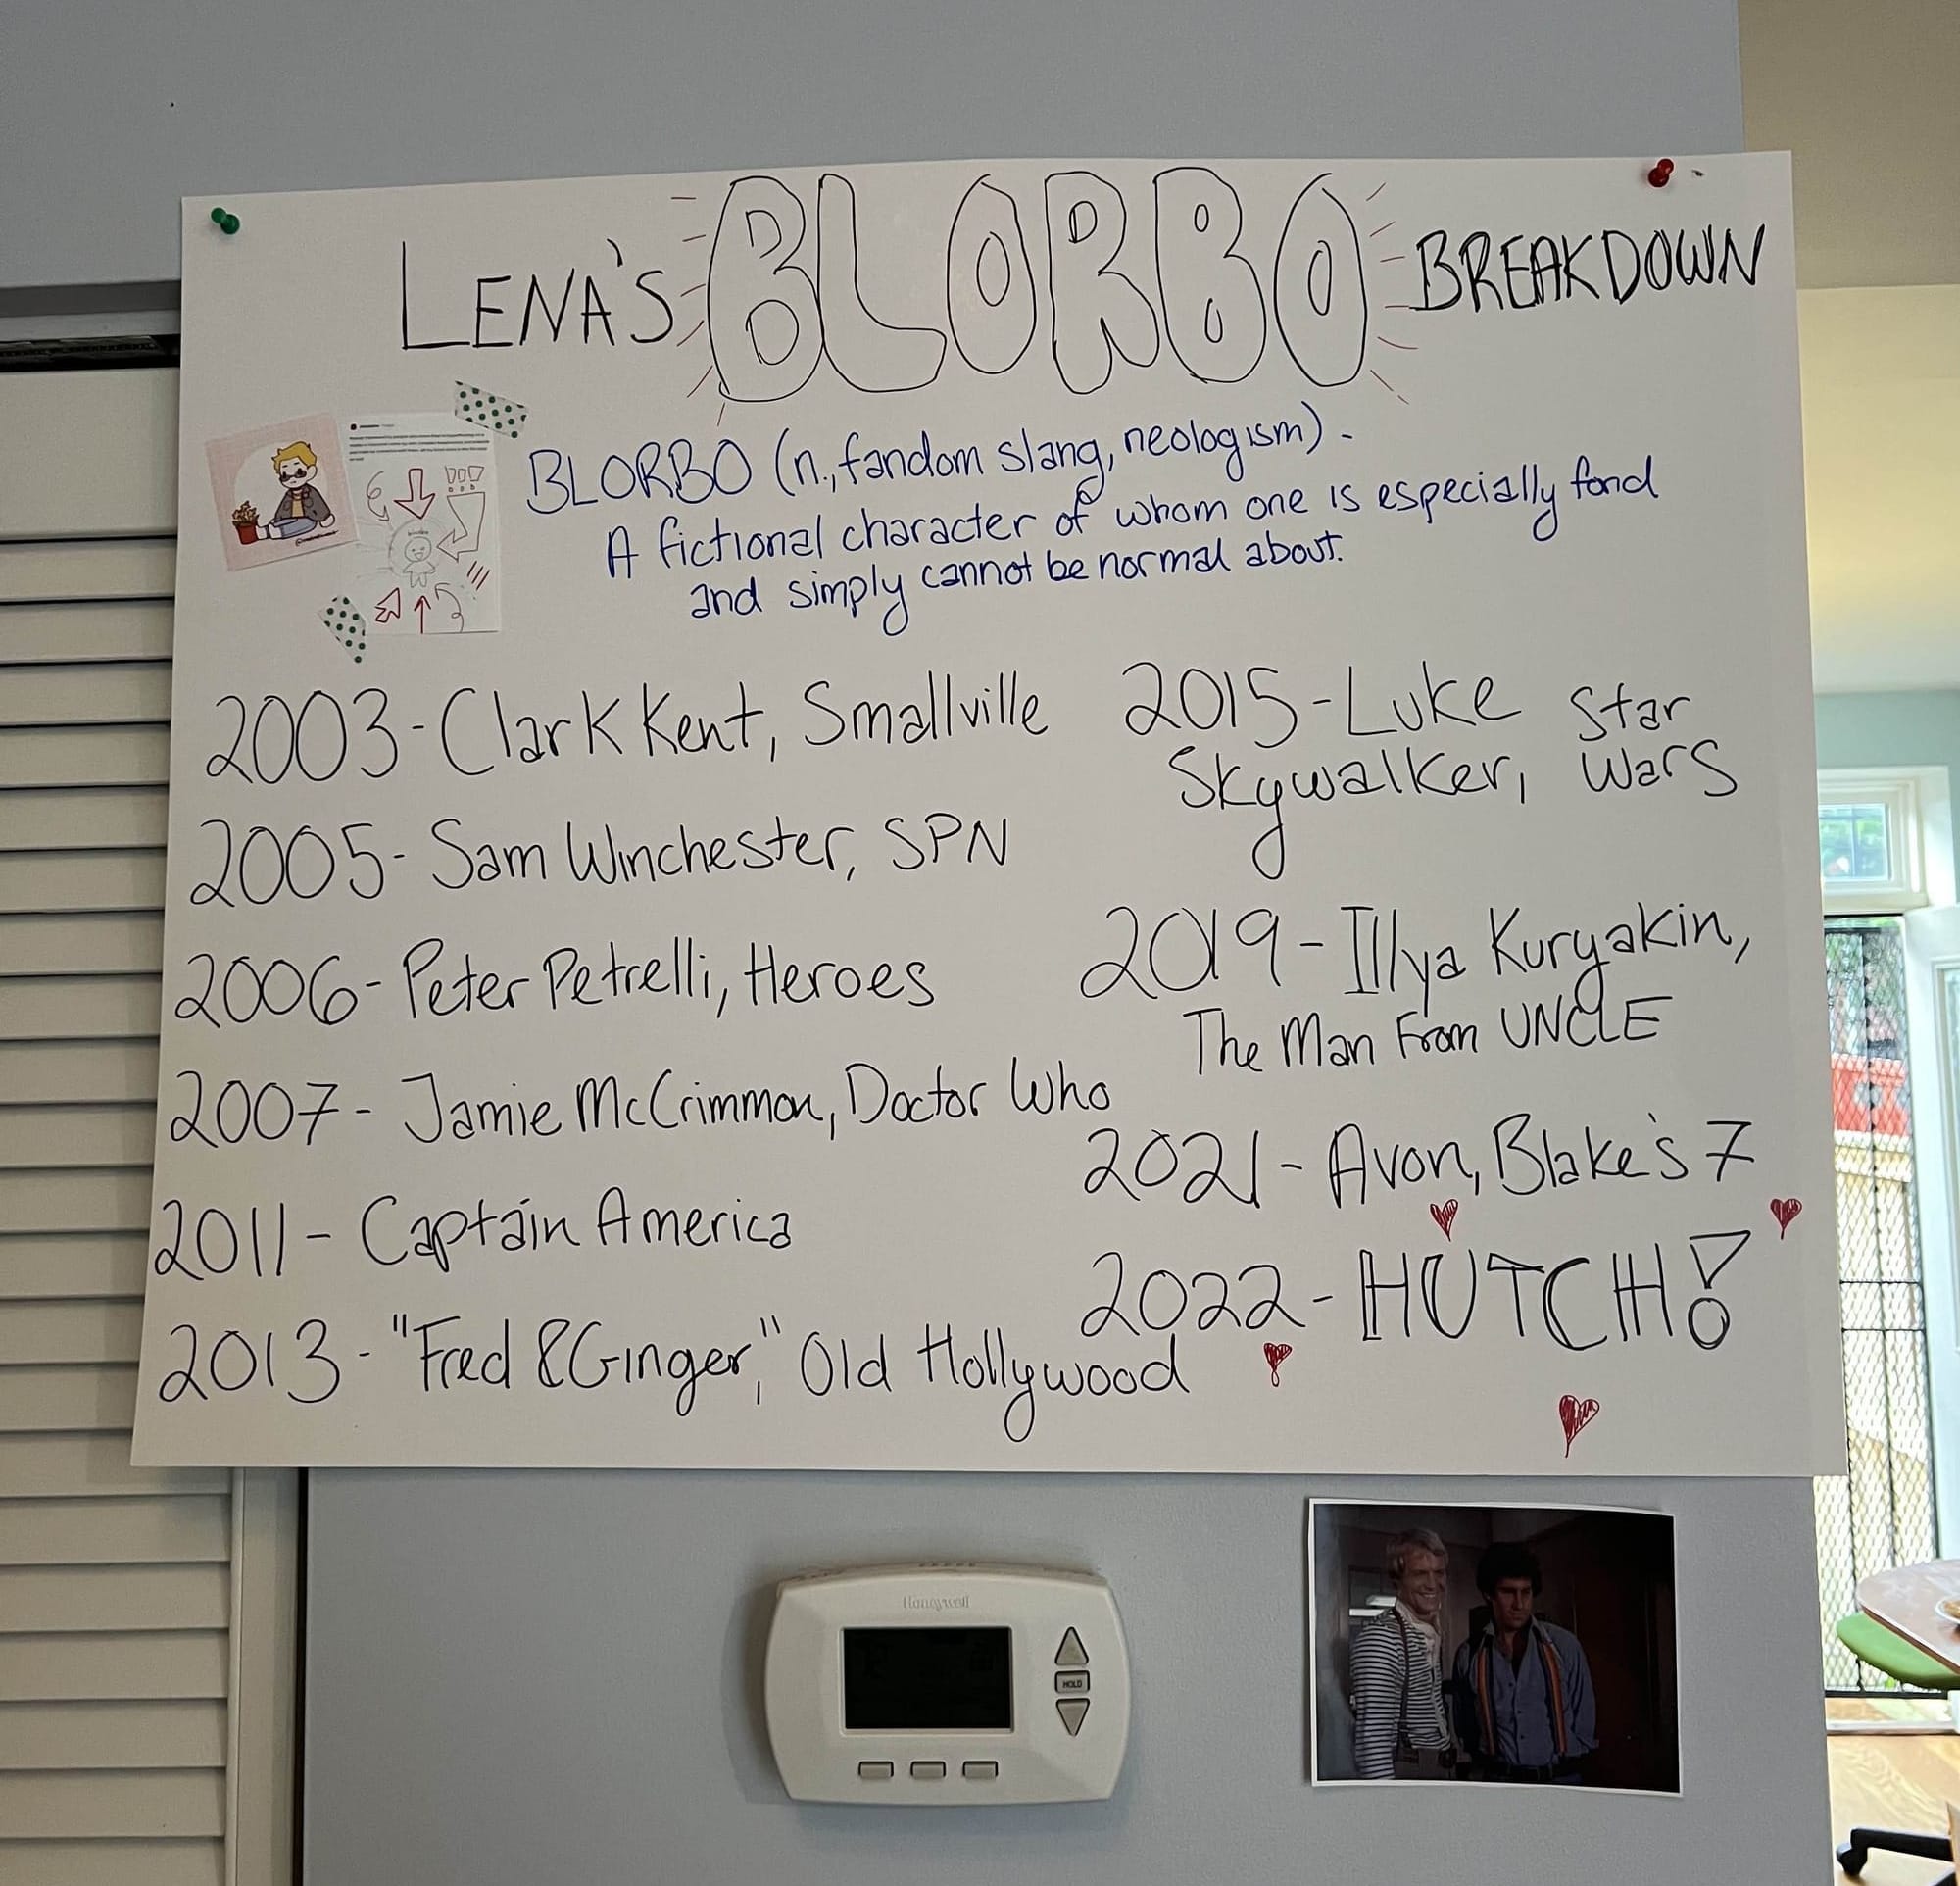 LENA'S BLORBO BREAKDOWN
BLORBO (n., fandom slang, neologism) -
A fictional character of whom one is especially fond
and simply cannot be normal about.
2003 - Clark Kent, Smallville
2005 - Sam Winchester, SPN
2006 - Peter Petrelli, Heroes
2007 - Jamie McCrimmon, Doctor Who
2011 - Captain America
2013 - "Fred & Ginger," Old Hollywood
2015 - Luke Star
Skywalker, Wars
2019 - Illya Kuryakin,
The Man From UNCLE
2021 - Avon, Blake's 7
2022 - HUTCH!
Honeywell
HOLD